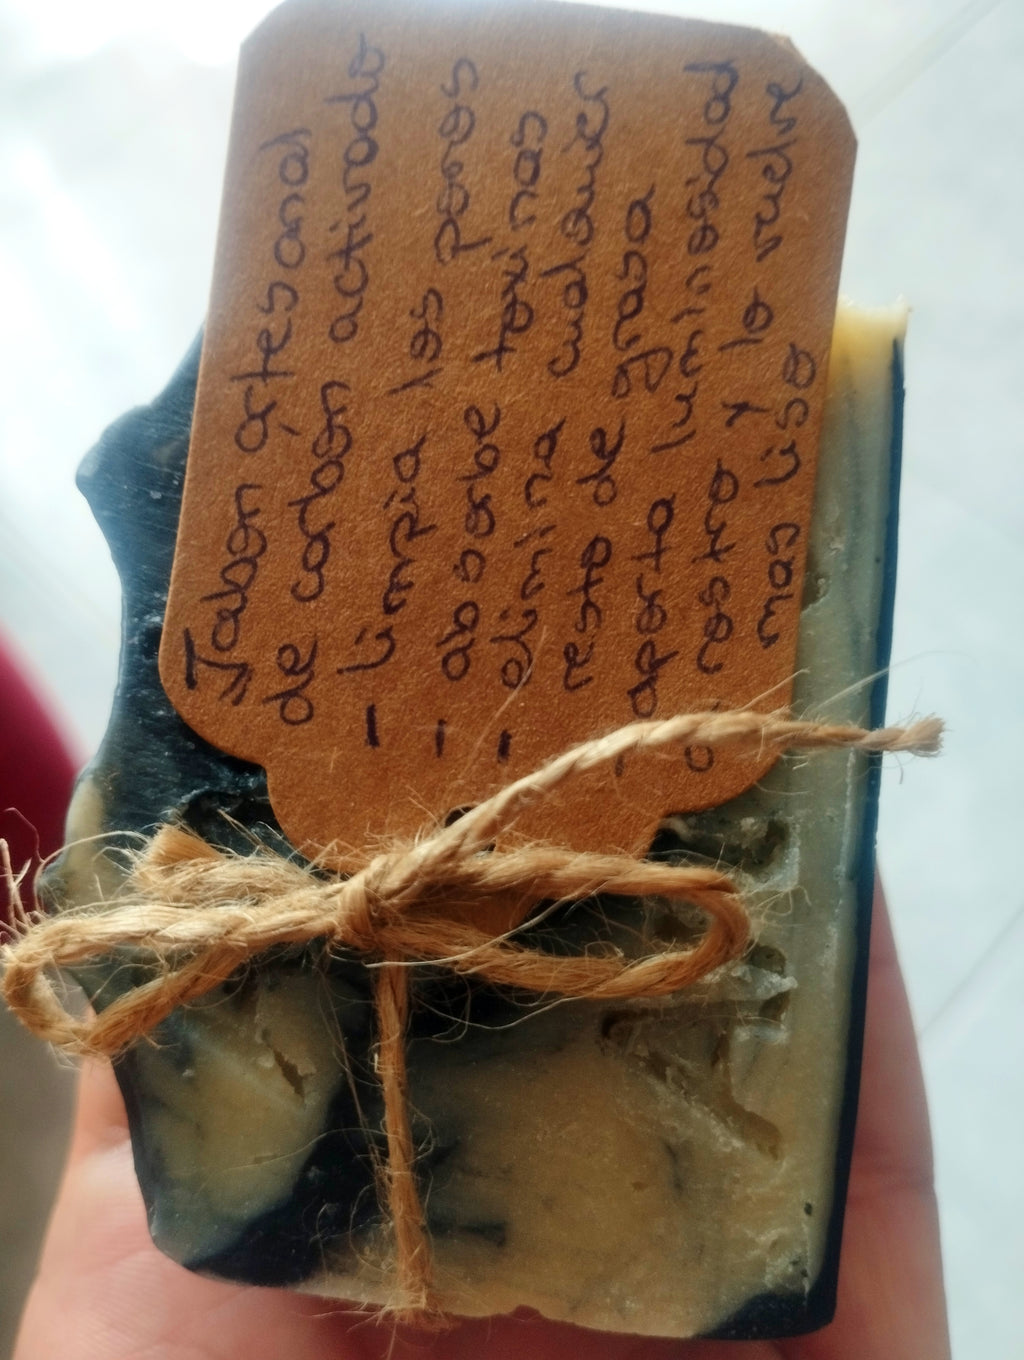 Jabon artesanal
de carbón activado
- limpia los poros
- absorbe toxinas
- elimina cualquier
resto de grasa
- aporta luminosidad
al rostro y lo vuelve
mas liso